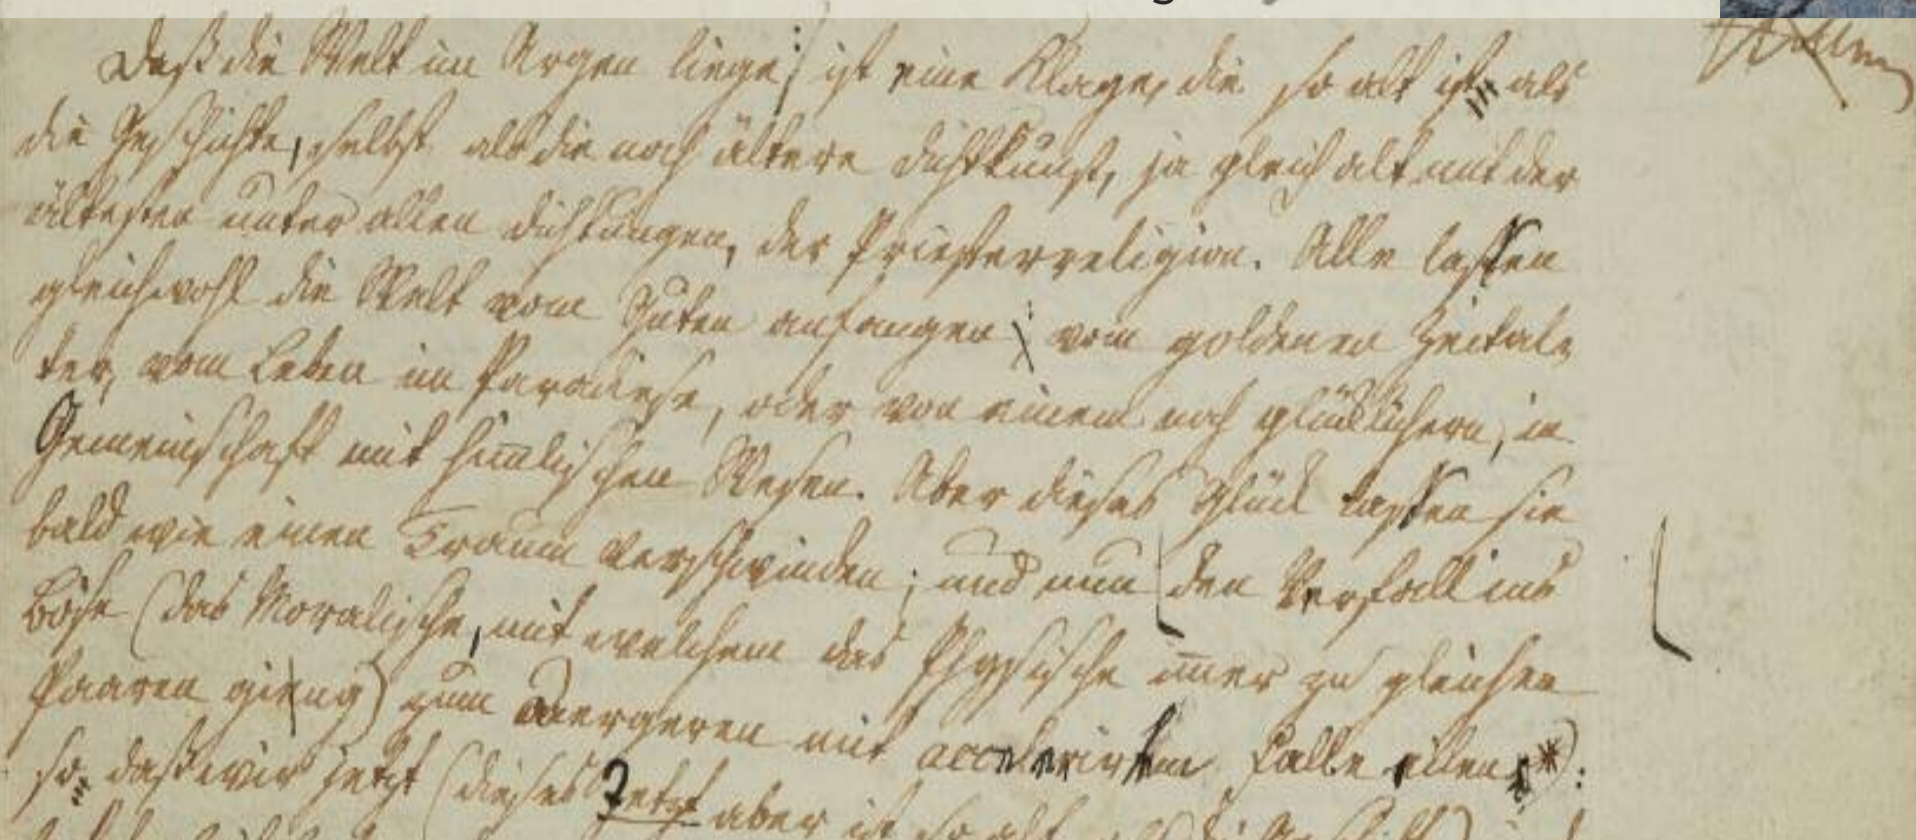 Daß die Welt im Argen liege: ist eine Klage, die so alt ist, als
die Geschichte, selbst als die noch ältere Dichtkunst, ja gleich alt mit der
ältesten unter allen Dichtungen, der Priesterreligion. Alle lassen
gleichwohl die Welt vom Guten anfangen: vom goldenen Zeital-
ter, vom Leben im Paradiese, oder von einem noch glücklichern, in
Gemeinschaft mit himlischen Wesen. Aber dieses Glück lassen sie
bald wie einen Traum verschwinden; und nun den Verfall ins
Böse (das Moralische, mit welchem das Physische imer zu gleichen
Paaren gieng) zum Aergeren mit accelerirtem Falle eilen *):
so, daß wir jetzt (dieses Jetzt aber ist so alt, als die Geschichte)